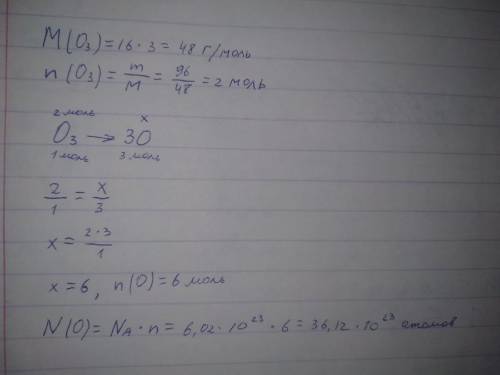 M(O₃) = 16 · 3 = 48 г/моль
n(O₃) = m/M = 96/48 = 2 моль
2 моль x
O₃ → 3O
1 моль 3 моль
2/1 = x/3
x = 2·3/1
x = 6, n(O) = 6 моль
N(O) = Nᴀ · n = 6,02 · 10²³ · 6 = 36,12 · 10²³ атомов